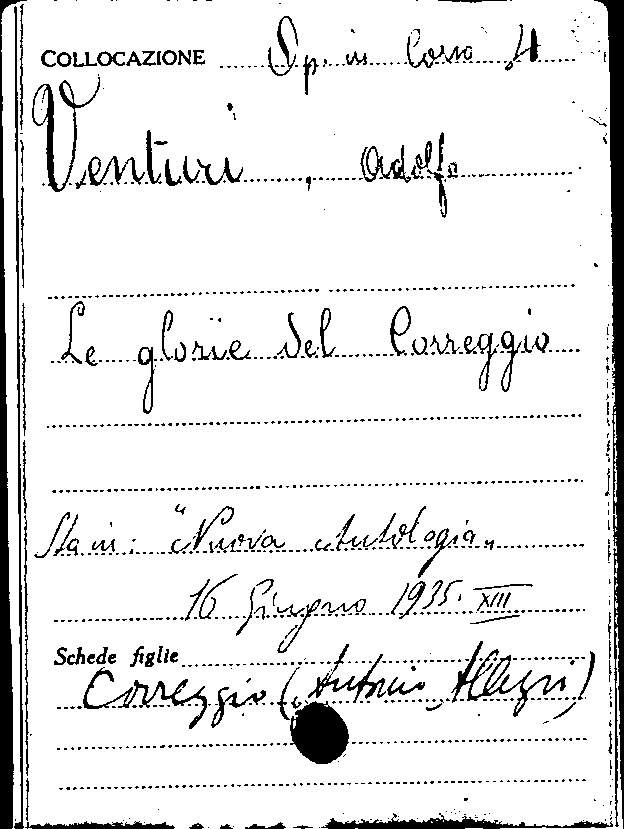 COLLOCAZIONE Op. in Corso 4
Venturi, Adolfo
Le glorie del Correggio
Sta in: "Nuova Antologia„
16 Giugno 1935. XIII
Schede figlie
Correggio (Antonio Allegri)